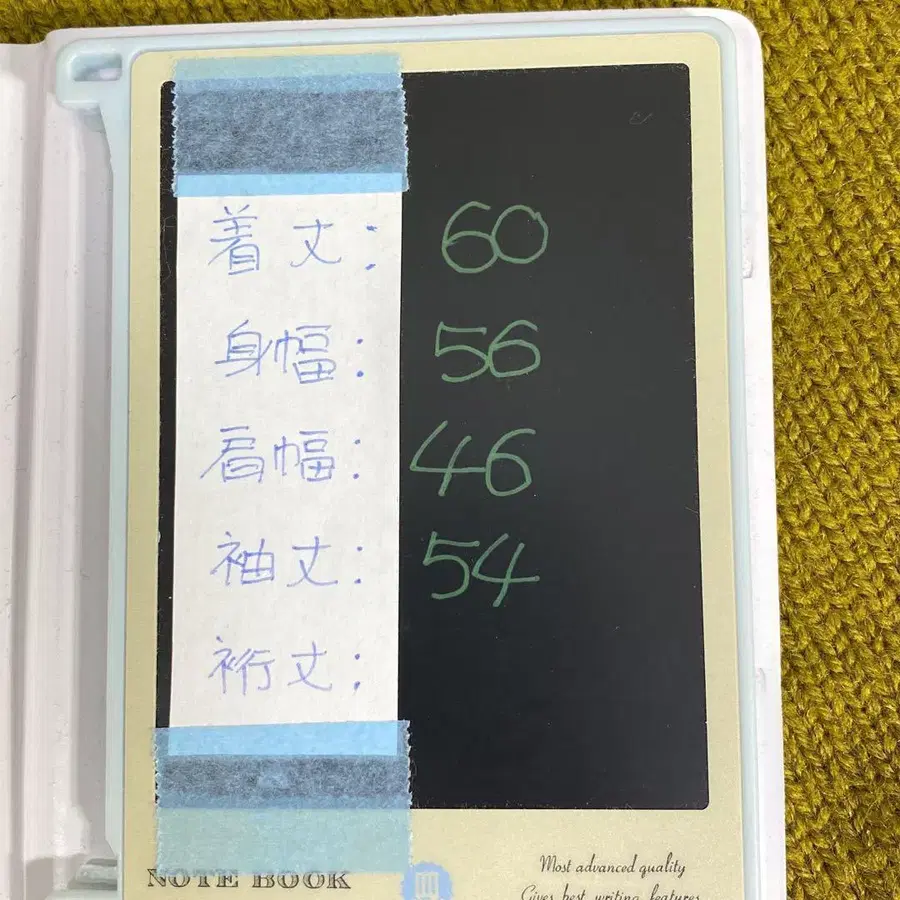 着丈: 60
身幅: 56
肩幅: 46
袖丈: 54
裄丈:
NOTE BOOK
Most advanced quality
Gives best writing features